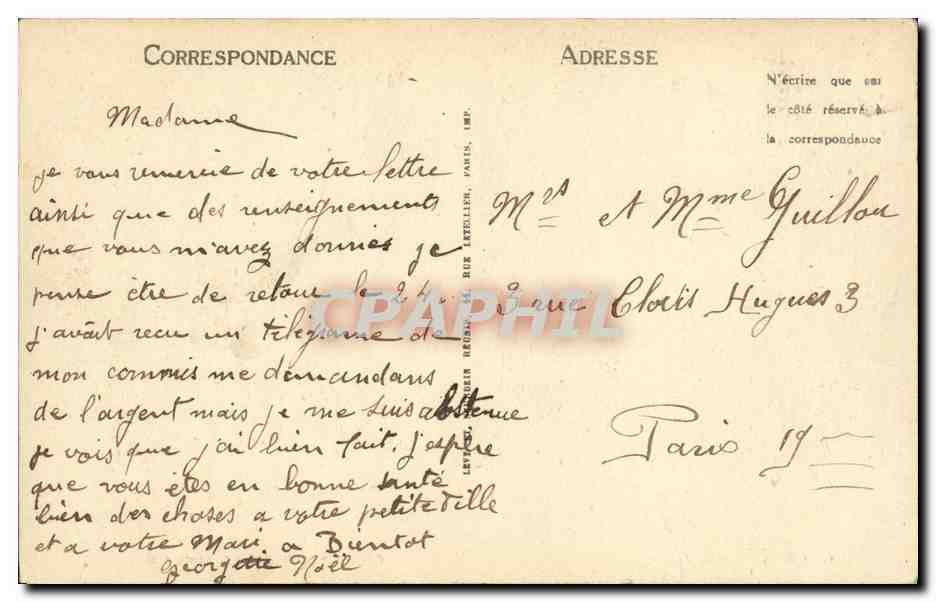 CORRESPONDANCE
Madame
je vous remercie de votre lettre
ainsi que des renseignements
que vous m'avez donnés je
pense être de retour le 24.
j'avait recu un télégrame de
mon commis me demandans
de l'argent mais je me suis abstenue
je vois que j'ai bien fait. j'espère
que vous êtes en bonne santé
bien des choses a votre petite fille
et a votre Mari a Bientot
georgette Noël
LEVY ET NEURDEIN RÉUNIS, 44, RUE LETELLIER, PARIS, IMP.
ADRESSE
N'écrire que sur
le côté réservé à
la correspondance
Mrs et Mme Guillou
3 rue Clovis Hugues 3
Paris 19
CPAPHIL